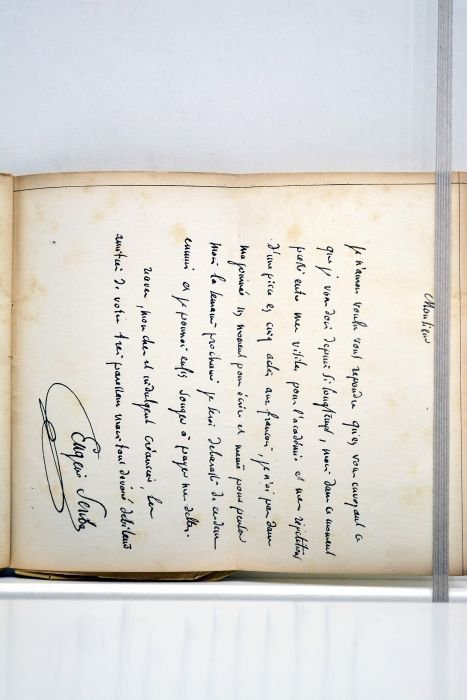 Monsieur
je n'aurai voulu vous répondre qu'en vous envoyant ce
que je vous dois depuis si longtemps, mais dans ce moment
partagé entre mes visites pour l'académie et mes répétitions
d'une pièce en cinq actes aux français, je n'ai pas dans
ma journée un moment pour écrire et même pour parler
mais la semaine prochaine je serai débarassé de
ennuis et je pourrai enfin songer à payer mes dettes.
mon cher et indulgent créancier
amitiés de votre très
dévoué débiteur
Eugène Scribe